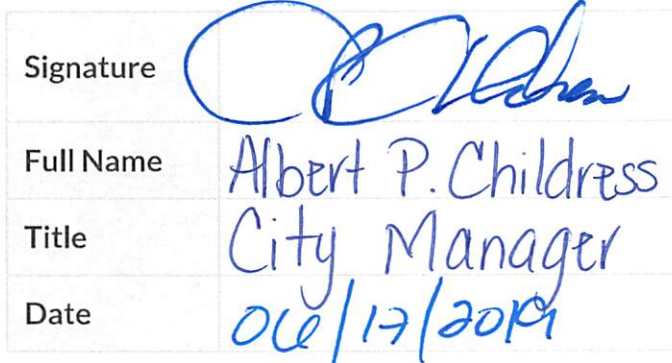 Signature
Full Name Albert P. Childress
Title City Manager
Date 06/17/2019